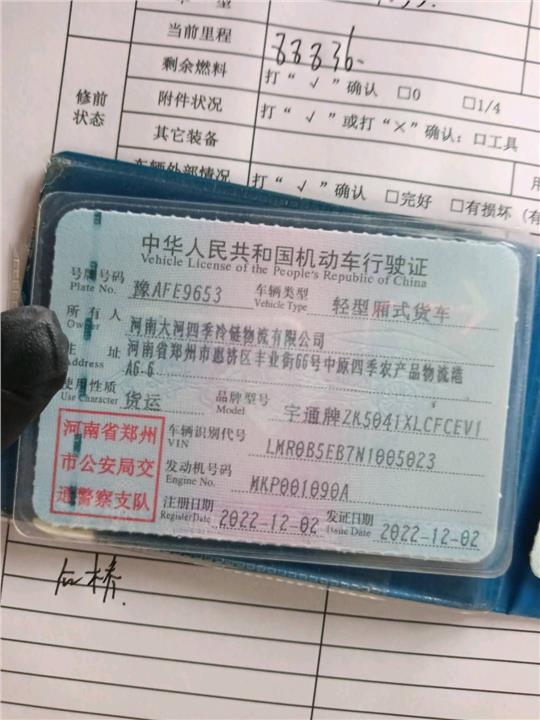 当前里程 88836
剩余燃料 打“√”确认 □0 □1/4
修前状态
附件状况 打“√”或打“×”确认：□工具
其它装备
车辆外部情况 打“√”确认 □完好 □有损坏（有
中华人民共和国机动车行驶证
Vehicle License of the People's Republic of China
号牌号码 Plate No. 豫AFE9653 车辆类型 Vehicle Type 轻型厢式货车
所有人 Owner 河南大河四季冷链物流有限公司
住址 Address 河南省郑州市惠济区丰业街66号中原四季农产品物流港
AG-6
使用性质 Use Character 货运 品牌型号 Model 宇通牌ZK5041XLCFCEV1
河南省郑州
市公安局交
通警察支队
车辆识别代号 VIN LMR0B5EB7N1005023
发动机号码 Engine No. MKP001090A
注册日期 Register Date 2022-12-02 发证日期 Issue Date 2022-12-02